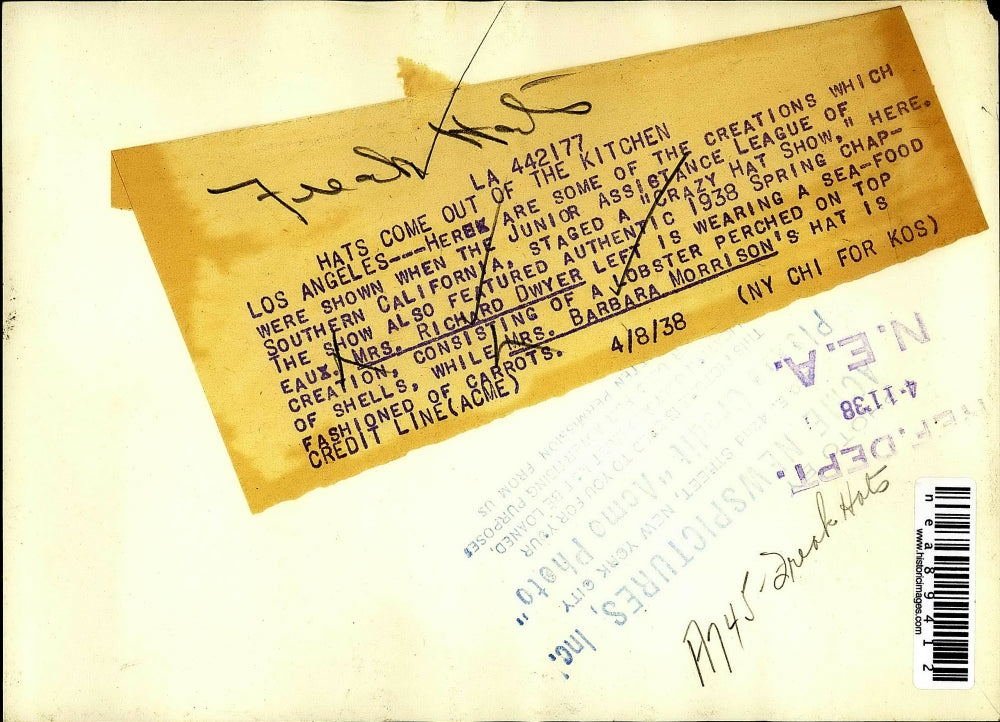 Freak Hats
LA 442177
HATS COME OUT OF THE KITCHEN
LOS ANGELES---HEREX ARE SOME OF THE CREATIONS WHICH
WERE SHOWN WHEN THE JUNIOR ASSISTANCE LEAGUE OF
SOUTHERN CALIFORNIA, STAGED A "CRAZY HAT SHOW," HERE.
THE SHOW ALSO FEATURED AUTHENTIC 1938 SPRING CHAP-
EAUX. MRS. RICHARD DWYER LEFT IS WEARING A SEA-FOOD
CREATION, CONSISTING OF A LOBSTER PERCHED ON TOP
OF SHELLS, WHILE MRS. BARBARA MORRISON'S HAT IS
FASHIONED OF CARROTS.
CREDIT LINE(ACME) 4/8/38 (NY CHI FOR KOS)
N. E. A.
4-11'38
REF. DEPT.
ACME NEWSPICTURES, Inc.
STREET, NEW YORK CITY
"Acme Photo"
TO YOU FOR YOUR
BE LOANED,
PURPOSES
PERMISSION FROM US
P1745-Freak Hats
nea89412
www.historicimages.com